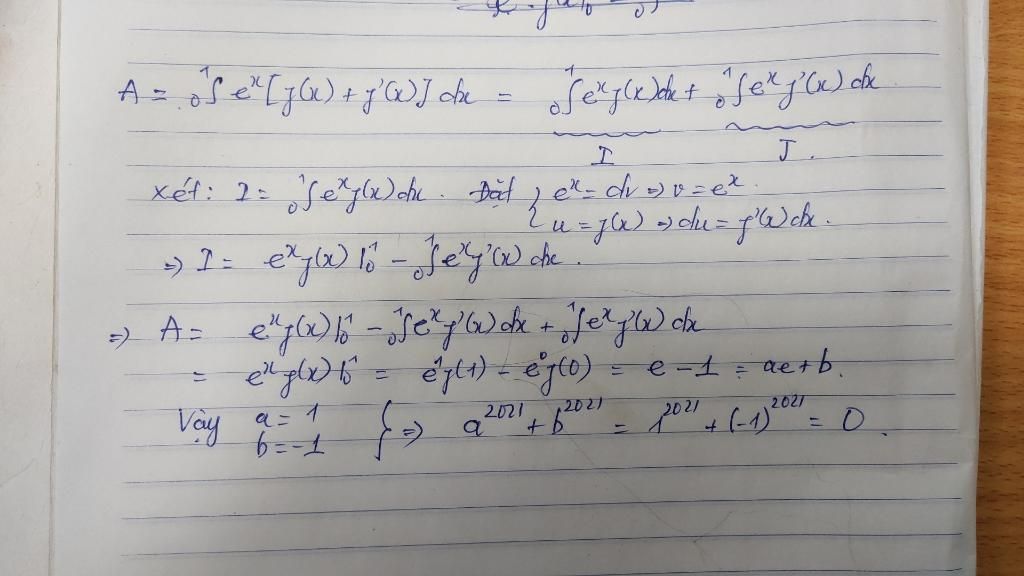 A = ₀¹∫ eˣ[f(x) + f'(x)] dx = ₀¹∫eˣf(x)dx + ₀¹∫eˣf'(x) dx
I J.
Xét: I = ₀¹∫eˣf(x)dx. Đặt { eˣ = dv => v = eˣ.
u = f(x) => du = f'(x)dx.
=> I = eˣf(x) |₀¹ - ₀¹∫eˣf'(x) dx.
=> A = eˣf(x) |₀¹ - ₀¹∫eˣf'(x) dx + ₀¹∫eˣf'(x) dx
= eˣf(x) |₀¹ = e¹f(1) - e⁰f(0) = e - 1 = ae + b.
Vậy a = 1
b = -1 } => a²⁰²¹ + b²⁰²¹ = 1²⁰²¹ + (-1)²⁰²¹ = 0.